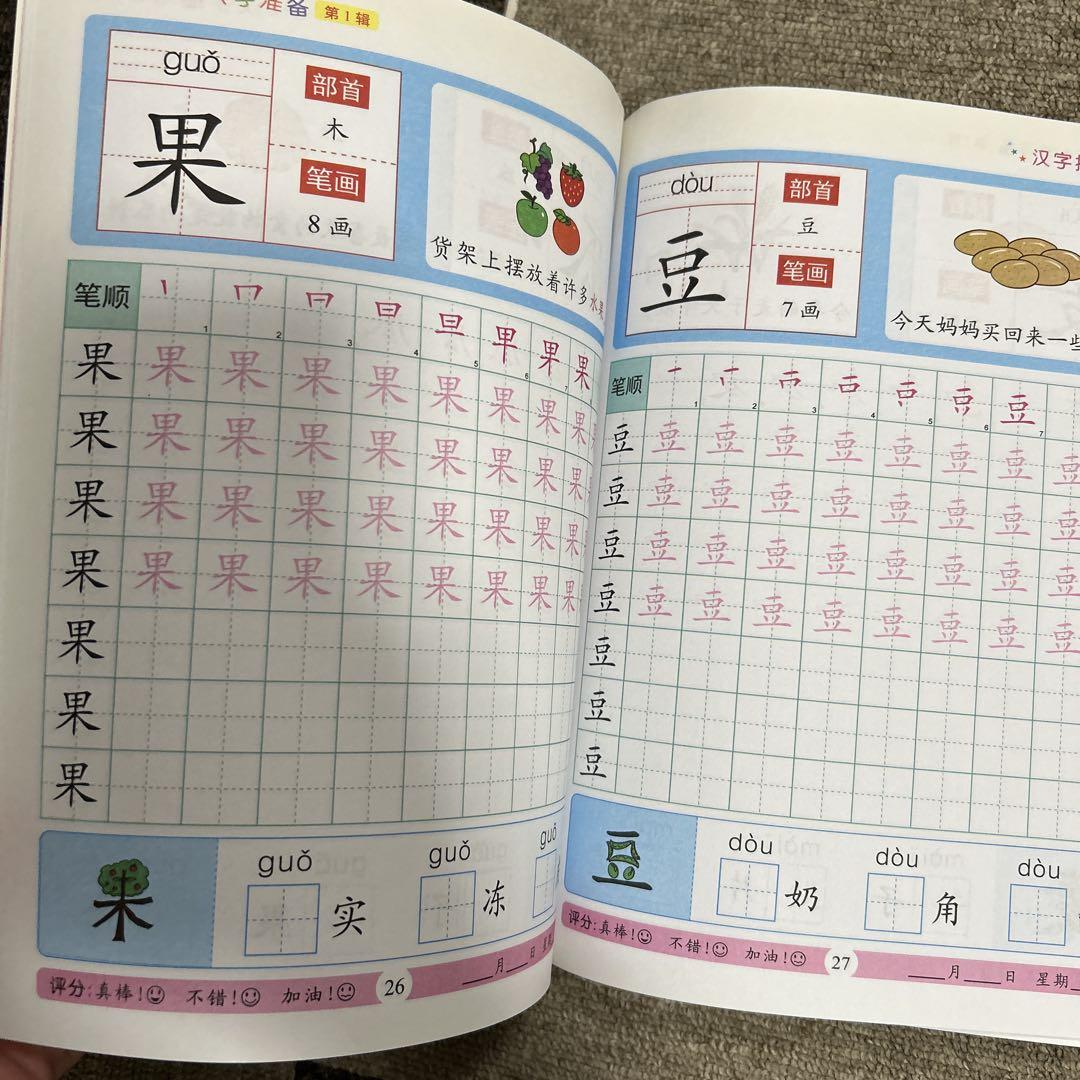 准备 第1辑
guǒ
果
部首
木
笔画
8画
货架上摆放着许多水果
笔顺 丨 冂 日 日 旦 早 果 果
1 2 3 4 5 6 7
果 果 果 果 果 果 果 果 果
果 果 果 果 果 果 果 果 果
果 果 果 果 果 果 果 果 果
果 果 果 果 果 果 果 果 果
果
果
果
果
guǒ guǒ guǒ
实 冻
评分:真棒! 不错! 加油! 26 月 日 星
汉字
dòu
豆
部首
豆
笔画
7画
今天妈妈买回来一些
笔顺 豆
1 2 3 4 5 6 7
豆 豆 豆 豆 豆 豆 豆 豆 豆
豆 豆 豆 豆 豆 豆 豆 豆 豆
豆 豆 豆 豆 豆 豆 豆 豆 豆
豆 豆 豆 豆 豆 豆 豆 豆 豆
豆
豆
豆
豆
dòu dòu dòu
奶 角
评分:真棒! 不错! 加油! 27 月 日 星期